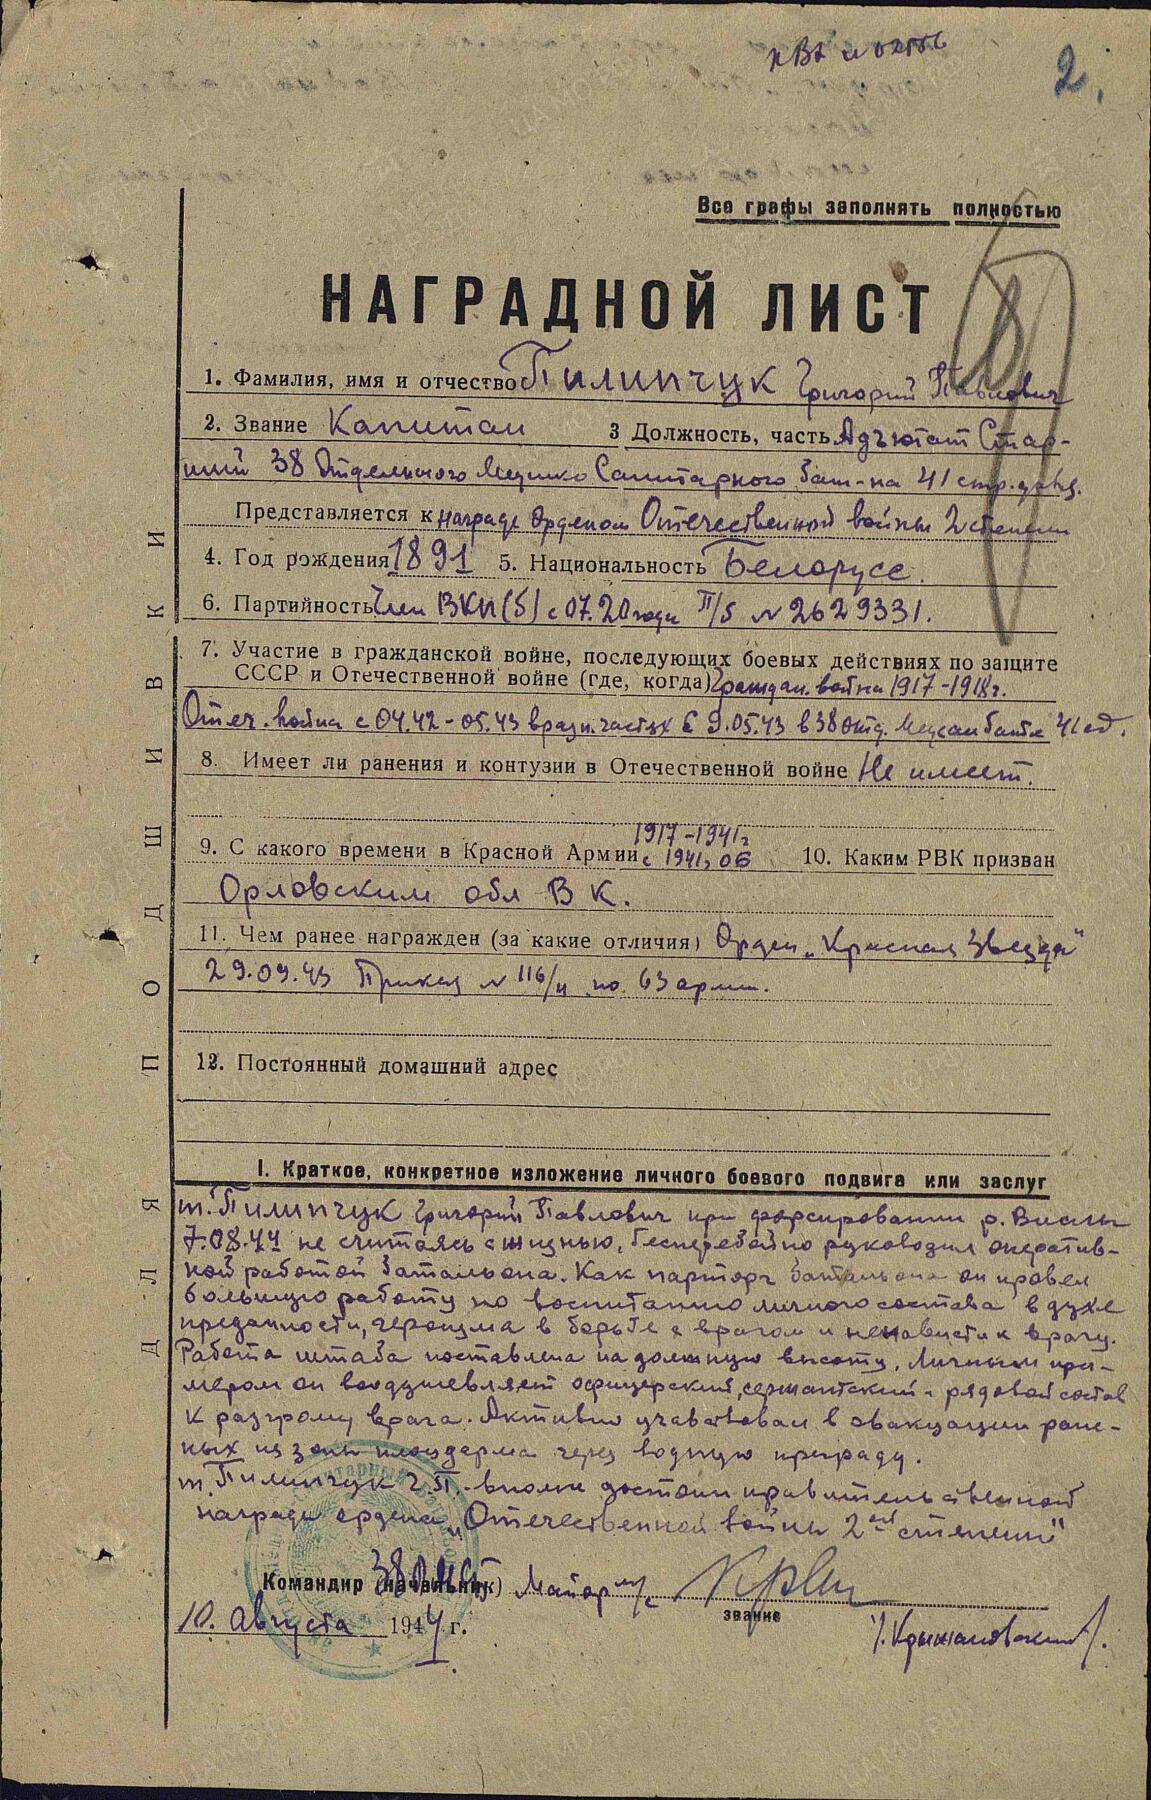 2.
Все графы заполнять полностью
НАГРАДНОЙ ЛИСТ
1. Фамилия, имя и отчество Пилипчук Григорий Павлович
2. Звание Капитан 3 Должность, часть Адъютант Стар-
ший 38 Отдельного Медико Санитарного бат-на 41 стр. дивиз.
Представляется к награде Орденом Отечественной войны 2 степени
4. Год рождения 1891 5. Национальность Белорусс.
6. Партийность Член ВКП(б) с 07.20 года П/б № 2629331.
7. Участие в гражданской войне, последующих боевых действиях по защите
СССР и Отечественной войне (где, когда) Граждан. война 1917-1918 г.
Отеч. война с 04.42-05.43 в разн. частях С 9.05.43 в 38 отд. Медсанбате 41 сд.
8. Имеет ли ранения и контузии в Отечественной войне Не имеет.
1917-1941г
9. С какого времени в Красной Армии с 1941г 06 10. Каким РВК призван
Орловским обл В К.
11. Чем ранее награжден (за какие отличия) Орден „Красная Звезда"
29.09.43 Приказ № 116/н по 63 армии.
12. Постоянный домашний адрес
I. Краткое, конкретное изложение личного боевого подвига или заслуг
т. Пилипчук Григорий Павлович при форсировании р. Вислы
7.08.44 не считаясь с жизнью, бесперебойно руководил оператив-
ной работой батальона. Как парторг батальона он провел
большую работу по воспитанию личного состава в духе
преданности, героизма в борьбе с врагом и ненависти к врагу.
Работа штаба поставлена на должную высоту. Личным при-
мером он воодушевляет офицерский, сержантский и рядовой состав
к разгрому врага. Активно учавствовал в эвакуации ране-
ных из зоны плацдарма через водную преграду.
т. Пилипчук Г.П. - вполне достоин правительственной
награды ордена „Отечественной войны 2ой степени"
Командир (начальник) 38 Майор м/с
звание
10. августа 1944 г.
/Крыжановский/.
ДЛЯ ПОДШИВКИ